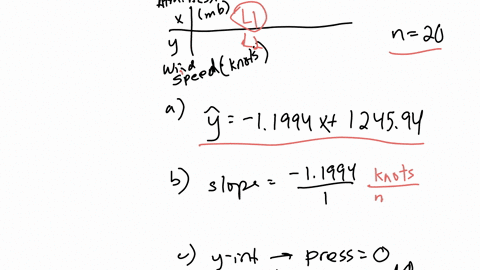 x (mb) L1
y L2
n = 20
wind
speed (knots)
a) ŷ = -1.1994 x + 1245.94
b) slope = -1.1994 / 1 knots / n
c) y-int → press = 0